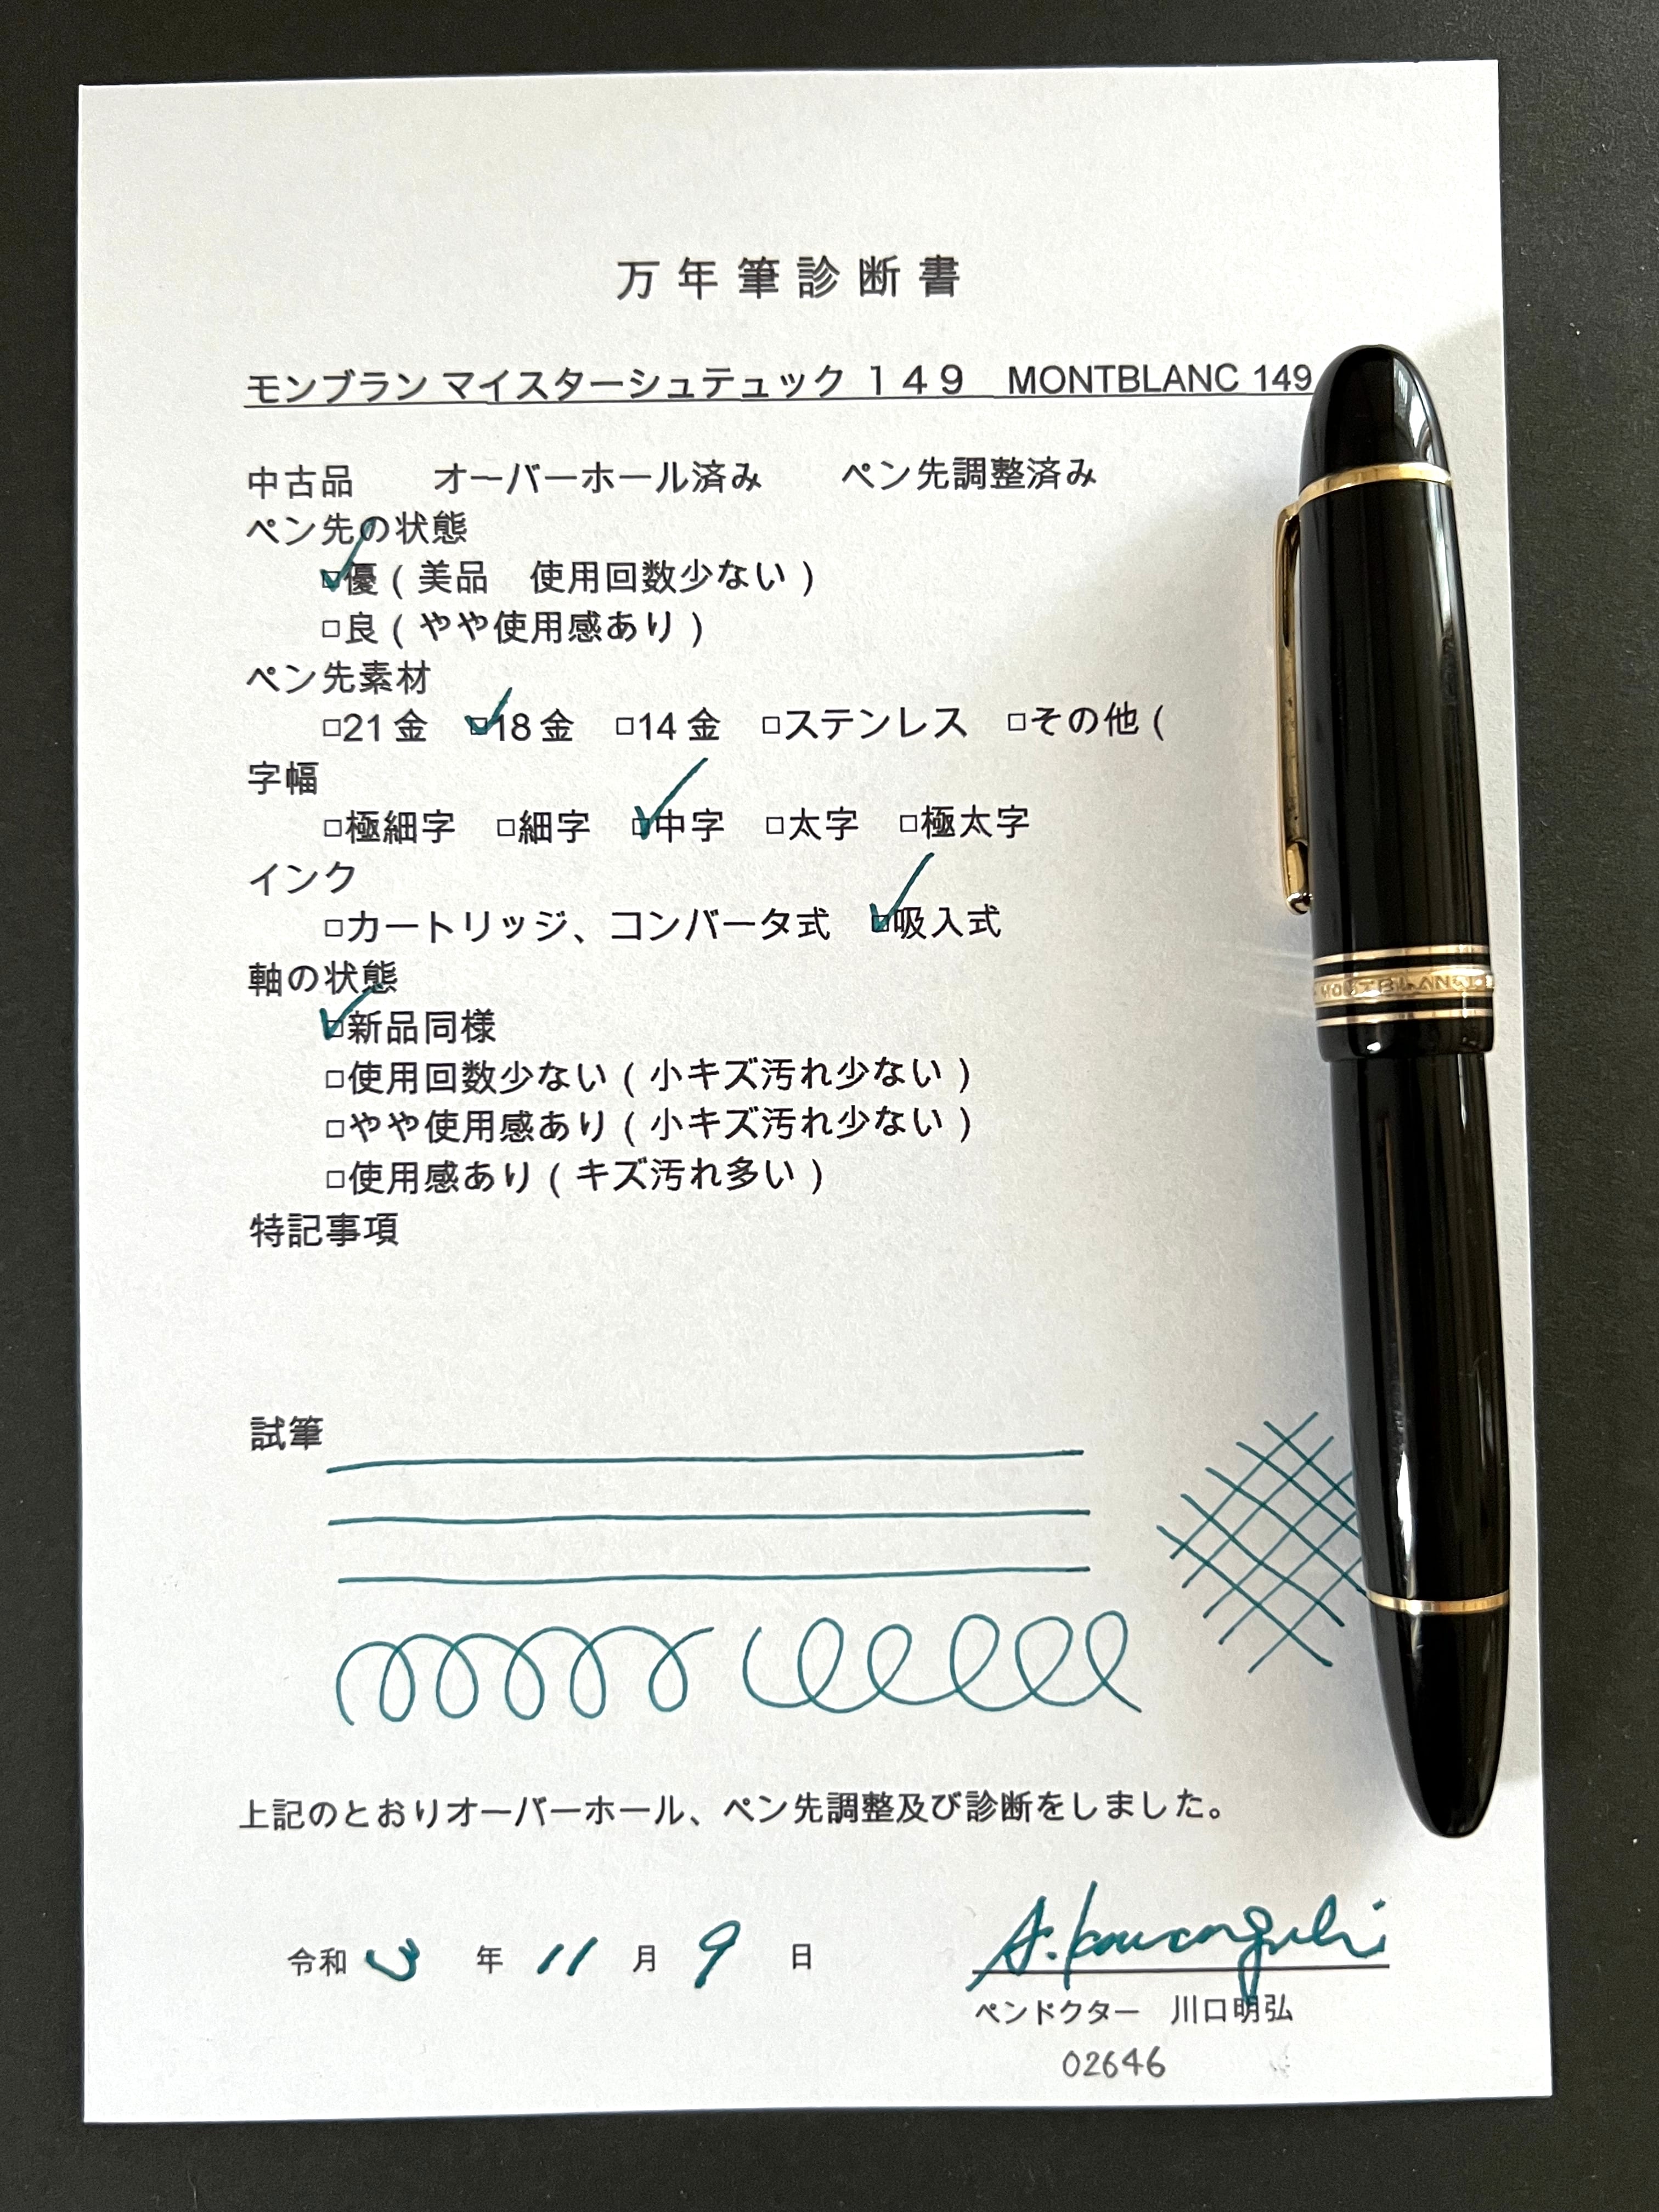 万年筆診断書
モンブラン マイスターシュテュック １４９　MONTBLANC 149
中古品　　オーバーホール済み　　ペン先調整済み
ペン先の状態
☑優（美品　使用回数少ない）
□良（やや使用感あり）
ペン先素材
□21金　☑18金　□14金　□ステンレス　□その他（
字幅
□極細字　□細字　☑中字　□太字　□極太字
インク
□カートリッジ、コンバータ式　☑吸入式
軸の状態
☑新品同様
□使用回数少ない（小キズ汚れ少ない）
□やや使用感あり（小キズ汚れ少ない）
□使用感あり（キズ汚れ多い）
特記事項
試筆
上記のとおりオーバーホール、ペン先調整及び診断をしました。
令和 3 年 11 月 9 日
A. Kawaguchi
ペンドクター　川口明弘
02646
MONTBLANC